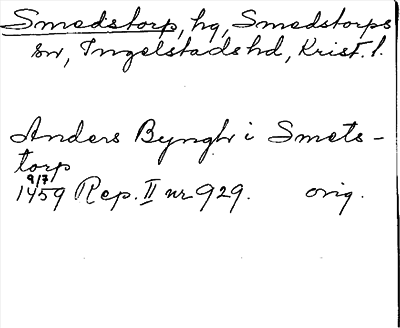 Smedstorp, hg, Smedstorps
sn, Ingelstads hd, Krist. l.
Anders Byngh i Smets-
torp
9/7
1459 Rep. II nr 929. orig.